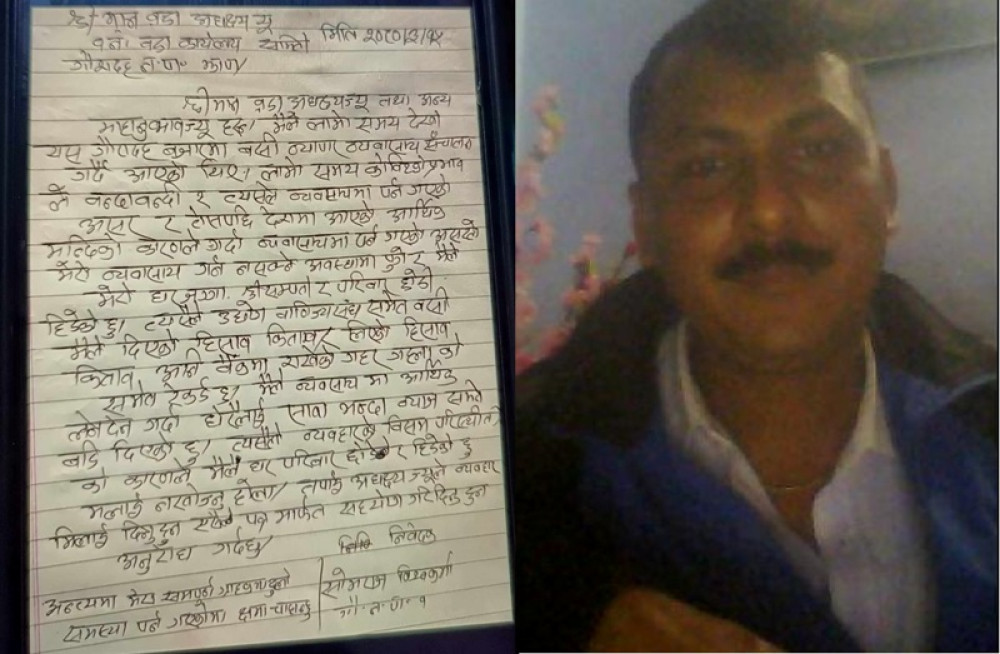 श्री मान वडा अध्यक्ष ज्यू
१ नं. वडा कार्यालय मिति २०८०/२/१५
गौरादह न.पा. झापा
श्रीमान वडा अध्यक्ष्यज्यू तथा अन्य
माहानुभावज्यू हरू। मैले लामो समय देखी
यस गौरादह बजारमा बसी व्यापार व्यवासाय संचालन
गर्दै आएको थिए। लामो समय कोभिडको प्रभाव
ले बन्दाबन्दी र त्यसले व्यवसायमा पर्न गएको
असर र त्यसपछि देशमा आएको आर्थिक
मन्दिका कारणले गर्दा व्यवासायमा पर्न गएको असरले
मेरो व्यवासाय गर्न नसक्ने अवस्थामा पुगे र मैले
मेरो घर जग्गा, श्रीसम्पती र परिवार छोडी
हिडेको छु। त्यसैले उद्योग बाणिज्यसंघ समेत बसी
मैले दिएको हिसाब किताब र लिएको हिसाव
किताव अनि बैंकमा राखेको गहना को
समेत रेकर्ड छ। मैले व्यवसाय मा आर्थिक
लेनदेन गर्दा धेरैलाई सावा भन्दा ब्याज समेत
बढि दिएको छु। त्यसैले व्यवहारको बिसम परिस्थिती
को कारणले मैले घर परिवार छोडेर हिडेको छु
मलाई नखोज्नु होला। अध्यक्ष ज्यूले व्यवहार
मिलाई दिनुहुन पत्र मार्फत सहयोग गरिदिनु हुन
अनुरोध गर्दछु।
निवेदक
अन्त्यमा मेरा सम्पूर्ण सोमराज विश्वकर्मा
समस्या पर्न गएकोमा क्षमा चाहन्छु गौ.न.पा. १